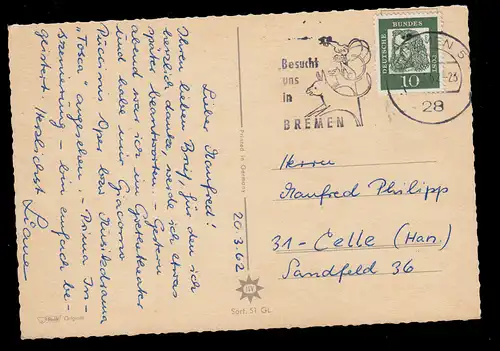 Lieber Manfred!
Ihren lieben Brief, für den ich
herzlich danke, werde ich etwas
später beantworten. – Gestern
abend war ich im Goethetheater
und habe mir Giacomo
Puccinis Oper bzw. Musikdrama
„Tosca“ angesehen. – Prima In-
szenierung – bin einfach be-
geistert. Herzlichst
20.3.62
Printed in Germany
Original
Sort. 51 GL
Besucht
uns
in
BREMEN
DEUTSCHE BUNDESPOST
10
28
Herrn
Manfred Philipp
31 - Celle (Han.)
Sandfeld 36